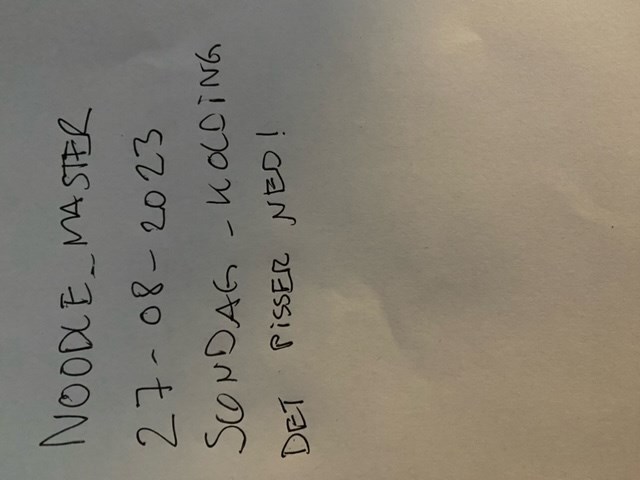 NOODLE_MASTER
27-08-2023
SØNDAG - KOLDING
DET PISSER NED!